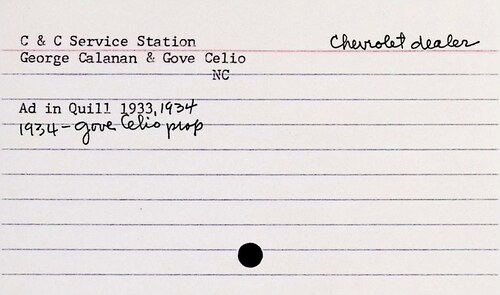 C & C Service Station Chevrolet dealer
George Calanan & Gove Celio
NC
Ad in Quill 1933, 1934
1934 - Gove Celio prop